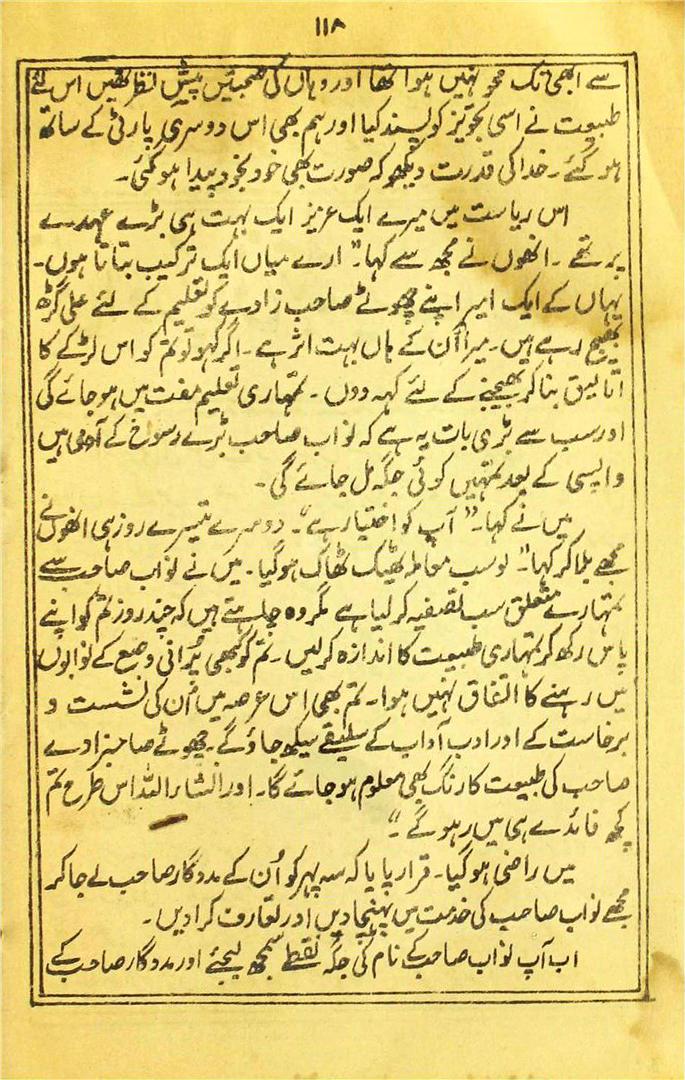 ۱۱۸
سے ابھی تک محو نہیں ہوا تھا اور وہاں کی صحبتیں پیش نظر تھیں اس لئے
طبیعت نے اسی تجویز کو پسند کیا اور ہم بھی اس دوسری پارٹی کے ساتھ
ہو گئے۔ خدا کی قدرت دیکھو کہ صورت بھی خود بخود پیدا ہو گئی۔
اس ریاست میں میرے ایک عزیز ایک بہت ہی بڑے عہدے
پر تھے۔ انھوں نے مجھ سے کہا۔" ارے میاں ایک ترکیب بتاتا ہوں۔
یہاں کے ایک امیر اپنے چھوٹے صاحب زادے کو تعلیم کے لئے علی گڑھ
بھیج رہے ہیں۔ میرا اُن کے ہاں بہت اثر ہے۔ اگر کہو تو تم کو اس لڑکے کا
اتالیق بنا کر بھیجنے کے لئے کہہ دوں۔ تمہاری تعلیم مفت میں ہو جائے گی
اور سب سے بڑی بات یہ ہے کہ نواب صاحب بڑے رسوخ کے آدمی ہیں
واپسی کے بعد تمہیں کوئی جگہ مل جائے گی۔
میں نے کہا۔" آپ کو اختیار ہے"۔ دوسرے تیسرے روز ہی انھوں نے
مجھے بلا کر کہا" لو سب معاملہ ٹھیک ٹھاک ہو گیا۔ میں نے نواب صاحب سے
تمہارے متعلق سب تصفیہ کر لیا ہے مگر وہ چاہتے ہیں کہ چند روز تم کو اپنے
پاس رکھ کر تمہاری طبیعت کا اندازہ کر لیں۔ تم کو کبھی پُرانی وضع کے نوابوں
میں رہنے کا اتفاق نہیں ہوا۔ تم بھی اس عرصہ میں اُن کی نشست و
برخاست کے اور ادب آداب کے سلیقے سیکھ جاؤ گے۔ چھوٹے صاحبزادے
صاحب کی طبیعت کا رنگ بھی معلوم ہو جائے گا۔ اور انشاء اللہ اس طرح تم
کچھ فائدے ہی میں رہو گے۔"
میں راضی ہو گیا۔ قرار پایا کہ سہ پہر کو اُن کے مددگار صاحب لے جا کر
مجھے نواب صاحب کی خدمت میں پہنچا دیں اور تعارف کرا دیں۔
اب آپ نواب صاحب کے نام کی جگہ نقطے سمجھ لیجئے اور مددگار صاحب کے